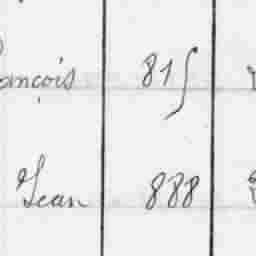 ançois 815
Jean 888